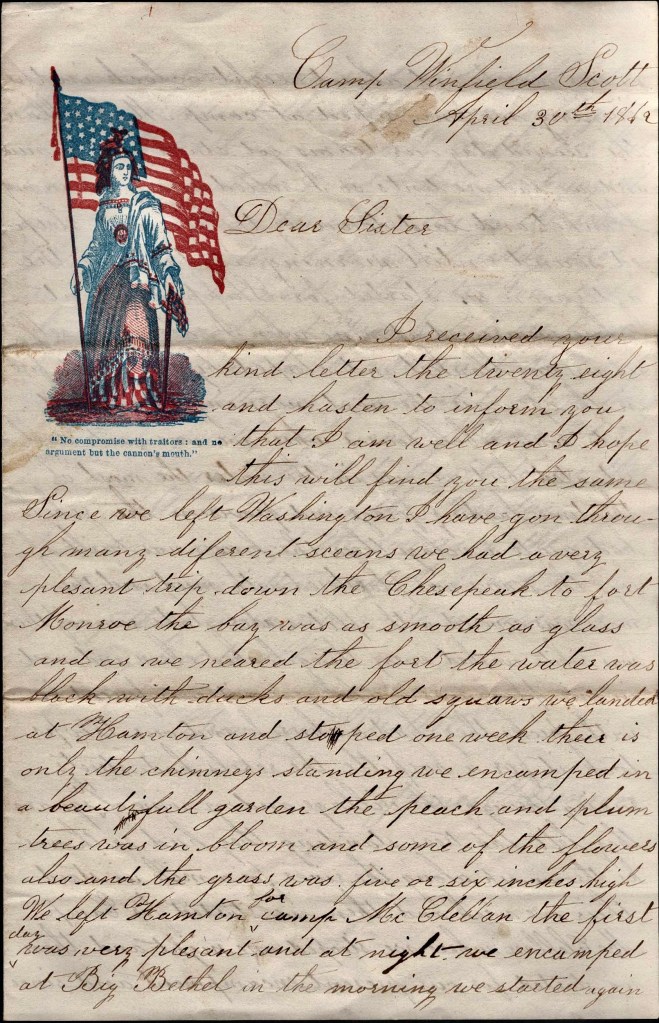 Camp Winfield Scott
April 30th 1862
Dear Sister
I received your
kind letter the twenty eight
and hasten to inform you
"No compromise with traitors: and no
argument but the cannon's mouth."
that I am well and I hope
this will find you the same
Since we left Washington I have gon throu-
gh many diferent sceans we had a very
plesant trip down the Chesepeak to fort
Monroe the bay was as smooth as glass
and as we neared the fort the water was
black with ducks and old squaws we landed
at Hamton and stopped one week their is
only the chimneys standing we encamped in
a beautifull garden the peach and plum
trees was in bloom and some of the flowers
also and the grass was five or six inches high
We left Hamton for camp Mc Clellan the first
day was very plesant and at night we encamped
at Big Bethel in the morning we started again